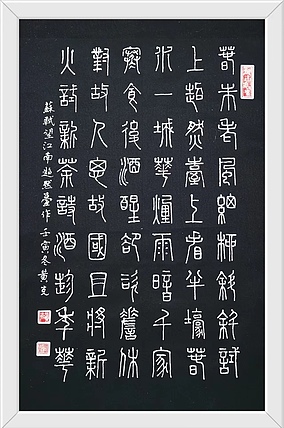 春未老風細柳斜斜試
上超然臺上看半壕春
水一城華煙雨暗千家
寒食後酒醒卻咨嗟休
對故人思故國且將新
火試新茶詩酒趁年華
蘇軾望江南超然臺作壬寅冬黃克